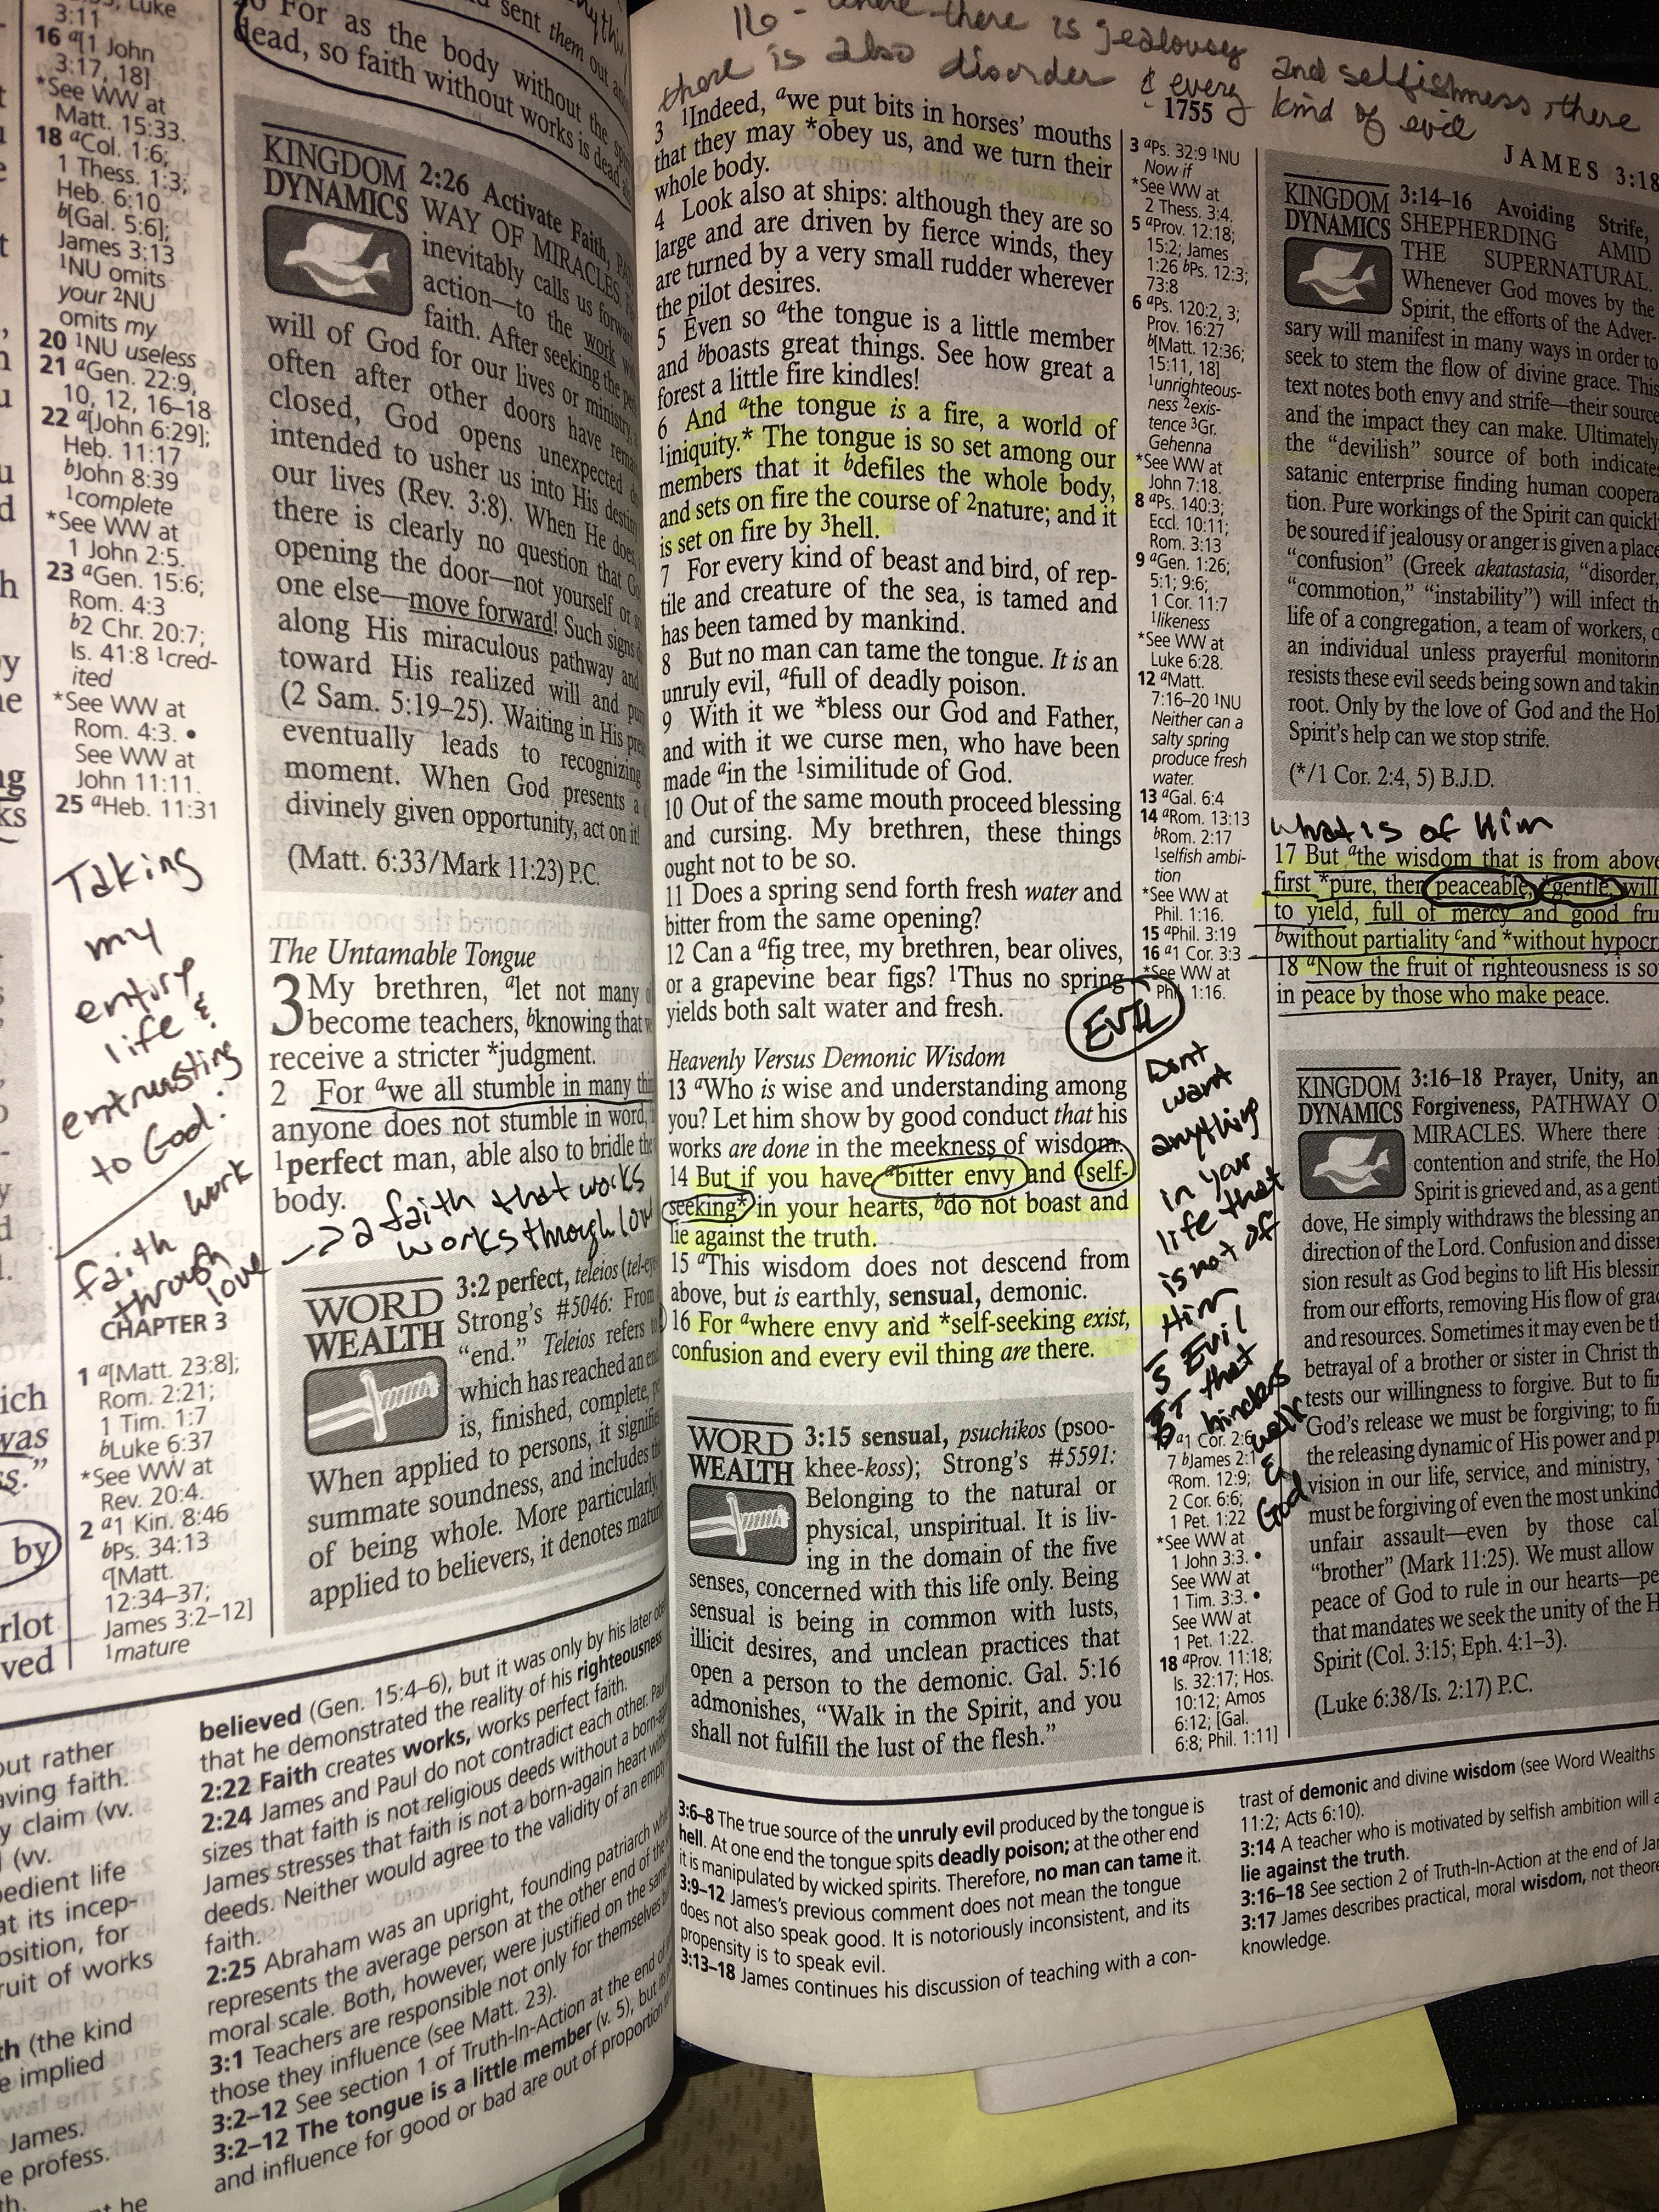 3:11
16 a[1 John
3:17, 18]
*See WW at
Matt. 15:33.
18 aCol. 1:6;
1 Thess. 1:3;
Heb. 6:10
b[Gal. 5:6];
James 3:13
1NU omits
your 2NU
omits my
20 1NU useless
21 aGen. 22:9,
10, 12, 16–18
22 a[John 6:29];
Heb. 11:17
bJohn 8:39
1complete
*See WW at
1 John 2:5.
23 aGen. 15:6;
Rom. 4:3
b2 Chr. 20:7;
Is. 41:8 1cred-
ited
*See WW at
Rom. 4:3. •
See WW at
John 11:11.
25 aHeb. 11:31
Taking
my
entire
life &
entrusting
to God.
faith work
through
love
CHAPTER 3
1 a[Matt. 23:8];
Rom. 2:21;
1 Tim. 1:7
bLuke 6:37
*See WW at
Rev. 20:4.
2 a1 Kin. 8:46
bPs. 34:13
c[Matt.
12:34–37;
James 3:2–12]
1mature
sent them out
For as the body without the
dead, so faith without works is dead
KINGDOM DYNAMICS
2:26 Activate Faith,
WAY OF MIRACLES.
inevitably calls us forward
action—to the work
faith. After seeking the
will of God for our lives or ministry,
often after other doors have
closed, God opens unexpected
intended to usher us into His
our lives (Rev. 3:8). When He does,
there is clearly no question that
opening the door—not yourself or
one else—move forward! Such signs
along His miraculous pathway and
toward His realized will and
(2 Sam. 5:19–25). Waiting in His
eventually leads to recognizing
moment. When God presents a
divinely given opportunity, act on it!
(Matt. 6:33/Mark 11:23) P.C.
The Untamable Tongue
3 My brethren, alet not many
become teachers, bknowing that
receive a stricter *judgment.
2 For awe all stumble in many
anyone does not stumble in word,
1perfect man, able also to bridle the
body.
a faith that works
works through love
WORD WEALTH
3:2 perfect, teleios
Strong's #5046: From
"end." Teleios refers
which has reached an end
is, finished, complete,
When applied to persons, it
summate soundness, and includes
of being whole. More particularly,
applied to believers, it denotes
believed (Gen. 15:4–6), but it was only by his later
that he demonstrated the reality of his righteousness
2:22 Faith creates works, works perfect faith.
2:24 James and Paul do not contradict each other. Paul
sizes that faith is not religious deeds without a
James stresses that faith is not a born-again heart
deeds. Neither would agree to the validity of an
faith.
2:25 Abraham was an upright, founding patriarch
represents the average person at the other end of the
moral scale. Both, however, were justified on the same
3:1 Teachers are responsible not only for themselves
those they influence (see Matt. 23).
3:2–12 See section 1 of Truth-In-Action at the end of
3:2–12 The tongue is a little member (v. 5), but
and influence for good or bad are out of proportion
16 - Where there is jealousy and selfishness, there
there is also disorder & every kind of evil
1755
JAMES 3:18
3 1Indeed, awe put bits in horses' mouths
that they may *obey us, and we turn their
whole body.
4 Look also at ships: although they are so
large and are driven by fierce winds, they
are turned by a very small rudder wherever
the pilot desires.
5 Even so athe tongue is a little member
and bboasts great things. See how great a
forest a little fire kindles!
6 And athe tongue is a fire, a world of
1iniquity.* The tongue is so set among our
members that it bdefiles the whole body,
and sets on fire the course of 2nature; and it
is set on fire by 3hell.
7 For every kind of beast and bird, of rep-
tile and creature of the sea, is tamed and
has been tamed by mankind.
8 But no man can tame the tongue. It is an
unruly evil, afull of deadly poison.
9 With it we *bless our God and Father,
and with it we curse men, who have been
made ain the 1similitude of God.
10 Out of the same mouth proceed blessing
and cursing. My brethren, these things
ought not to be so.
11 Does a spring send forth fresh water and
bitter from the same opening?
12 Can a afig tree, my brethren, bear olives,
or a grapevine bear figs? 1Thus no spring
yields both salt water and fresh.
Heavenly Versus Demonic Wisdom
13 aWho is wise and understanding among
you? Let him show by good conduct that his
works are done in the meekness of wisdom.
14 But if you have abitter envy and 1self-
seeking* in your hearts, bdo not boast and
lie against the truth.
15 aThis wisdom does not descend from
above, but is earthly, sensual, demonic.
16 For awhere envy and *self-seeking exist,
confusion and every evil thing are there.
WORD WEALTH
3:15 sensual, psuchikos (psoo-
khee-koss); Strong's #5591:
Belonging to the natural or
physical, unspiritual. It is liv-
ing in the domain of the five
senses, concerned with this life only. Being
sensual is being in common with lusts,
illicit desires, and unclean practices that
open a person to the demonic. Gal. 5:16
admonishes, "Walk in the Spirit, and you
shall not fulfill the lust of the flesh."
3 aPs. 32:9 1NU
Now if
*See WW at
2 Thess. 3:4.
5 aProv. 12:18;
15:2; James
1:26 bPs. 12:3;
73:8
6 aPs. 120:2, 3;
Prov. 16:27
b[Matt. 12:36;
15:11, 18]
1unrighteous-
ness 2exis-
tence 3Gr.
Gehenna
*See WW at
John 7:18.
8 aPs. 140:3;
Eccl. 10:11;
Rom. 3:13
9 aGen. 1:26;
5:1; 9:6;
1 Cor. 11:7
1likeness
*See WW at
Luke 6:28.
12 aMatt.
7:16–20 1NU
Neither can a
salty spring
produce fresh
water.
13 aGal. 6:4
14 aRom. 13:13
bRom. 2:17
1selfish ambi-
tion
*See WW at
Phil. 1:16.
15 aPhil. 3:19
16 a1 Cor. 3:3
*See WW at
Phil. 1:16.
EVIL
Dont
want
anything
in your
life that
is not of
Him
Evil
that
hinders
walk
God
a1 Cor. 2:6,
7 bJames 2:1
cRom. 12:9;
2 Cor. 6:6;
1 Pet. 1:22
*See WW at
1 John 3:3. •
See WW at
1 Tim. 3:3. •
See WW at
1 Pet. 1:22.
18 aProv. 11:18;
Is. 32:17; Hos.
10:12; Amos
6:12; [Gal.
6:8; Phil. 1:11]
KINGDOM DYNAMICS
3:14–16 Avoiding Strife,
SHEPHERDING AMID
THE SUPERNATURAL.
Whenever God moves by the
Spirit, the efforts of the Adver-
sary will manifest in many ways in order to
seek to stem the flow of divine grace. This
text notes both envy and strife—their source
and the impact they can make. Ultimately
the "devilish" source of both indicates
satanic enterprise finding human coopera
tion. Pure workings of the Spirit can quickly
be soured if jealousy or anger is given a place
"confusion" (Greek akatastasia, "disorder,
"commotion," "instability") will infect the
life of a congregation, a team of workers, o
an individual unless prayerful monitorin
resists these evil seeds being sown and takin
root. Only by the love of God and the Hol
Spirit's help can we stop strife.
(*/1 Cor. 2:4, 5) B.J.D.
What is of Him
17 But athe wisdom that is from above
first *pure, then peaceable, *gentle, will
to yield, full of mercy and good fru
bwithout partiality cand *without hypocr
18 aNow the fruit of righteousness is so
in peace by those who make peace.
KINGDOM DYNAMICS
3:16–18 Prayer, Unity, an
Forgiveness, PATHWAY O
MIRACLES. Where there
contention and strife, the Hol
Spirit is grieved and, as a gent
dove, He simply withdraws the blessing an
direction of the Lord. Confusion and dissen
sion result as God begins to lift His blessin
from our efforts, removing His flow of grac
and resources. Sometimes it may even be th
betrayal of a brother or sister in Christ th
tests our willingness to forgive. But to fin
God's release we must be forgiving; to fi
the releasing dynamic of His power and pr
vision in our life, service, and ministry,
must be forgiving of even the most unkind
unfair assault—even by those cal
"brother" (Mark 11:25). We must allow
peace of God to rule in our hearts—pe
that mandates we seek the unity of the H
Spirit (Col. 3:15; Eph. 4:1–3).
(Luke 6:38/Is. 2:17) P.C.
3:6–8 The true source of the unruly evil produced by the tongue is
hell. At one end the tongue spits deadly poison; at the other end
it is manipulated by wicked spirits. Therefore, no man can tame it.
3:9–12 James's previous comment does not mean the tongue
does not also speak good. It is notoriously inconsistent, and its
propensity is to speak evil.
3:13–18 James continues his discussion of teaching with a con-
trast of demonic and divine wisdom (see Word Wealths
11:2; Acts 6:10).
3:14 A teacher who is motivated by selfish ambition will
lie against the truth.
3:16–18 See section 2 of Truth-In-Action at the end of Ja
3:17 James describes practical, moral wisdom, not theore
knowledge.